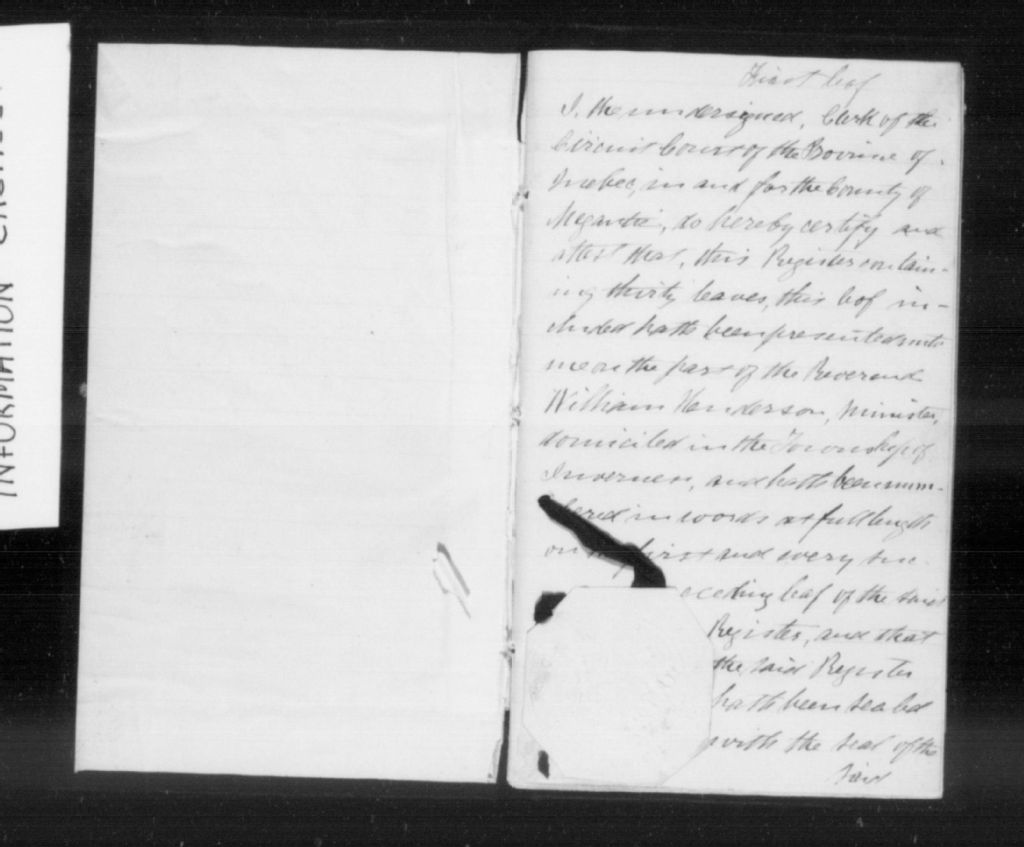 INFORMATION
First leaf
I, the undersigned, Clerk of the
Circuit Court of the Province of
Quebec, in and for the County of
Megantic, do hereby certify and
attest that, this Register contain-
ing thirty leaves, this leaf in-
cluded hath been presented unto
me on the part of the Reverend
William Henderson, Minister,
domiciled in the Township of
Inverness, and hath been num-
bered in words at full length
on the first and every suc-
ceeding leaf of the said
Register, and that
the said Register
hath been sealed
with the seal of the
said